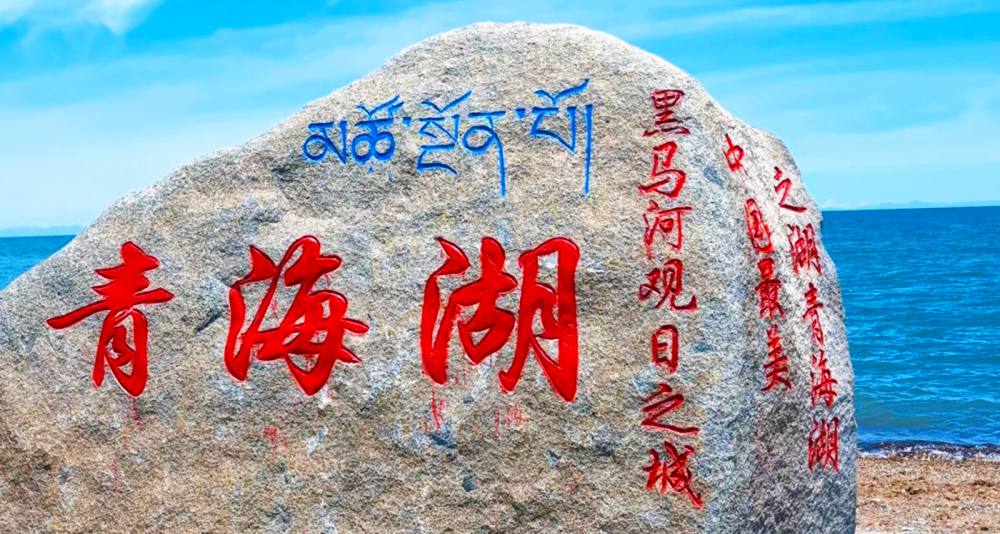 མཚོ་སྔོན་པོ།
青海湖
黑马河观日之城
中国最美
之湖青海湖